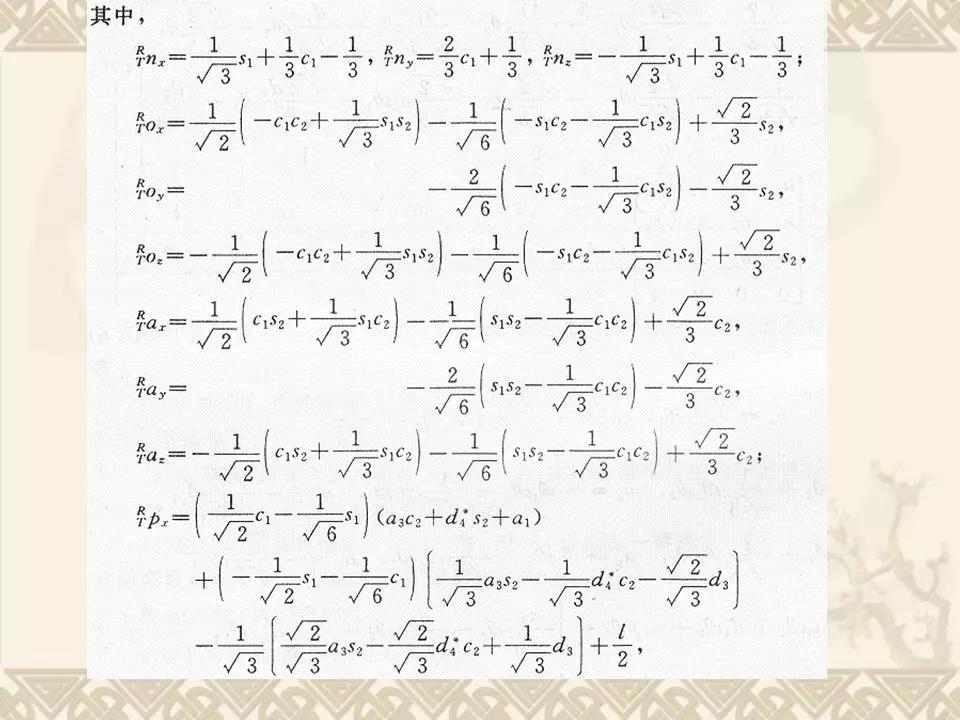 其中，
$^R_T n_x=\frac{1}{\sqrt{3}}s_1+\frac{1}{3}c_1-\frac{1}{3}$, $^R_T n_y=\frac{2}{3}c_1+\frac{1}{3}$, $^R_T n_z=-\frac{1}{\sqrt{3}}s_1+\frac{1}{3}c_1-\frac{1}{3}$;
$^R_T o_x=\frac{1}{\sqrt{2}}\left(-c_1c_2+\frac{1}{\sqrt{3}}s_1s_2\right)-\frac{1}{\sqrt{6}}\left(-s_1c_2-\frac{1}{\sqrt{3}}c_1s_2\right)+\frac{\sqrt{2}}{3}s_2$,
$^R_T o_y=-\frac{2}{\sqrt{6}}\left(-s_1c_2-\frac{1}{\sqrt{3}}c_1s_2\right)-\frac{\sqrt{2}}{3}s_2$,
$^R_T o_z=-\frac{1}{\sqrt{2}}\left(-c_1c_2+\frac{1}{\sqrt{3}}s_1s_2\right)-\frac{1}{\sqrt{6}}\left(-s_1c_2-\frac{1}{\sqrt{3}}c_1s_2\right)+\frac{\sqrt{2}}{3}s_2$,
$^R_T a_x=\frac{1}{\sqrt{2}}\left(c_1s_2+\frac{1}{\sqrt{3}}s_1c_2\right)-\frac{1}{\sqrt{6}}\left(s_1s_2-\frac{1}{\sqrt{3}}c_1c_2\right)+\frac{\sqrt{2}}{3}c_2$,
$^R_T a_y=-\frac{2}{\sqrt{6}}\left(s_1s_2-\frac{1}{\sqrt{3}}c_1c_2\right)-\frac{\sqrt{2}}{3}c_2$,
$^R_T a_z=-\frac{1}{\sqrt{2}}\left(c_1s_2+\frac{1}{\sqrt{3}}s_1c_2\right)-\frac{1}{\sqrt{6}}\left(s_1s_2-\frac{1}{\sqrt{3}}c_1c_2\right)+\frac{\sqrt{2}}{3}c_2$;
$^R_T p_x=\left(\frac{1}{\sqrt{2}}c_1-\frac{1}{\sqrt{6}}s_1\right)(a_3c_2+d_4^*s_2+a_1)$
$+\left(-\frac{1}{\sqrt{2}}s_1-\frac{1}{\sqrt{6}}c_1\right)\left[\frac{1}{\sqrt{3}}a_3s_2-\frac{1}{\sqrt{3}}d_4^*c_2-\frac{\sqrt{2}}{\sqrt{3}}d_3\right]$
$-\frac{1}{\sqrt{3}}\left[\frac{\sqrt{2}}{\sqrt{3}}a_3s_2-\frac{\sqrt{2}}{\sqrt{3}}d_4^*c_2+\frac{1}{\sqrt{3}}d_3\right]+\frac{l}{2}$,